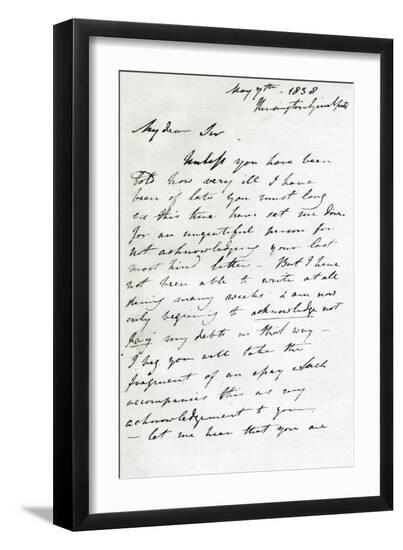 May 7th - 1838
Kensington Gravel Pits
My dear Sir
Unless you have been
told how very ill I have
been of late you must long
ere this time have set me down
for an ungrateful person for
not acknowledging your last
most kind letter - But I have
not been able to write at all
during many weeks & am now
only beginning to acknowledge not
pay my debts in that way -
I beg you will take the
fragment of an essay which
accompanies this as my
acknowledgement to you -
- let me hear that you are